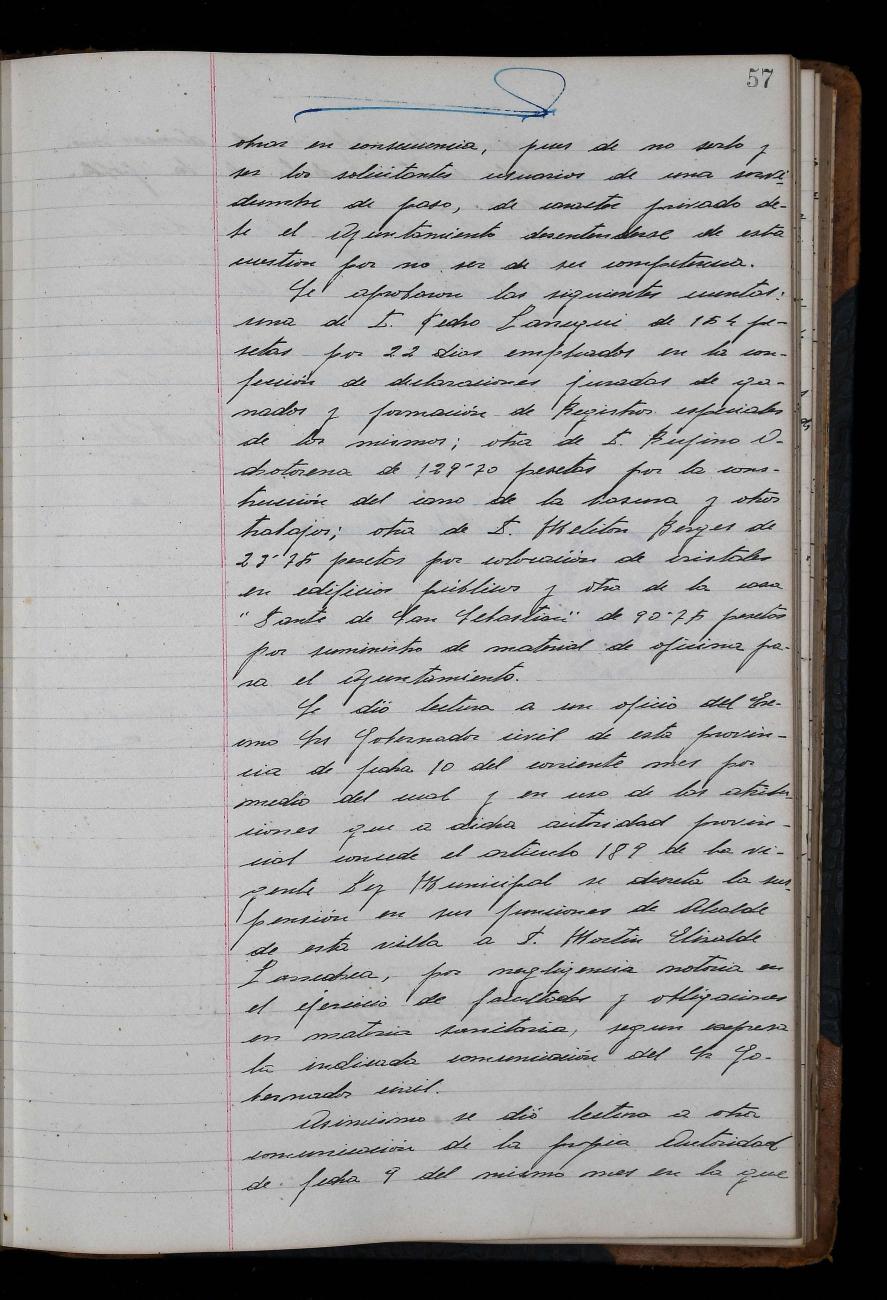 57
obrar en consecuencia, pues de no serlo y
ser los solicitantes usuarios de una servi-
dumbre de paso, de caracter privado de-
be el Ayuntamiento desentenderse de esta
cuestion por no ser de su competencia.
Se aprobaron las siguientes cuentas:
una de D. Pedro Larregui de 154 pe-
setas por 22 dias empleados en la con-
fección de declaraciones juradas de ga-
nados y formación de Registros especiales
de los mismos; otra de D. Rufino O-
chotorena de 129'70 pesetas por la cons-
trucción del cano de la basura y otros
trabajos; otra de D. Meliton Berges de
23'75 pesetas por colocación de cristales
en edificios públicos y otra de la casa
de San Sebastian" de 90'75 pesetas
por suministro de material de oficina pa-
ra el Ayuntamiento.
Se dió lectura a un oficio del Exc-
mo Sr Gobernador civil de esta provin-
cia de fecha 10 del corriente mes por
medio del cual y en uso de las atribu-
ciones que a dicha autoridad provin-
cial concede el articulo 189 de la vi-
gente Ley Municipal se decreta la sus-
pensión en sus funciones de Alcalde
de esta villa a D. Martin Elizalde
Larrechea, por negligencia notoria en
el ejercicio de facultades y obligaciones
en materia sanitaria, segun expresa
la indicada comunicación del Sr Go-
bernador civil.
Asimismo se dió lectura a otra
comunicación de la propia Autoridad
de fecha 9 del mismo mes en la que